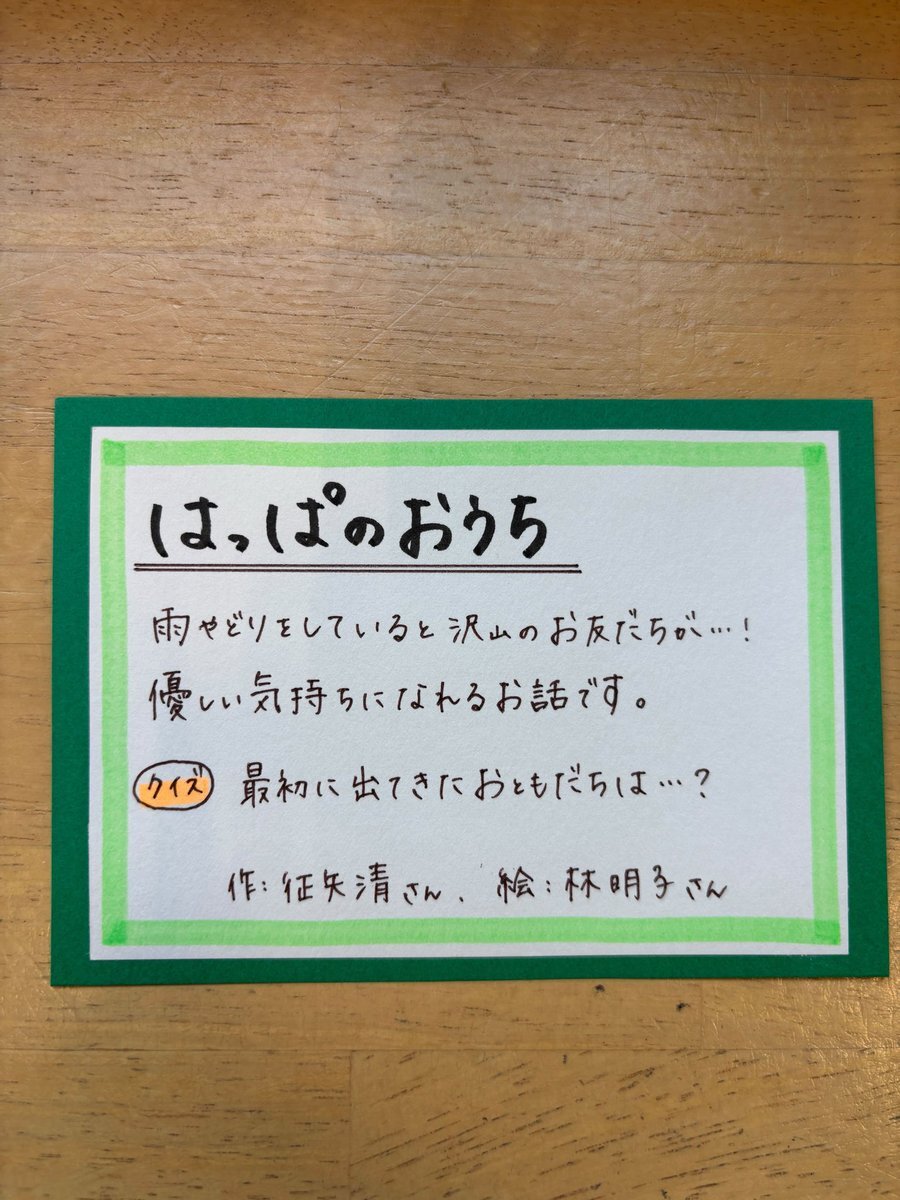 はっぱのおうち
雨やどりをしていると沢山のお友だちが…!
優しい気持ちになれるお話です。
クイズ 最初に出てきたおともだちは…?
作:征矢清さん、絵:林明子さん